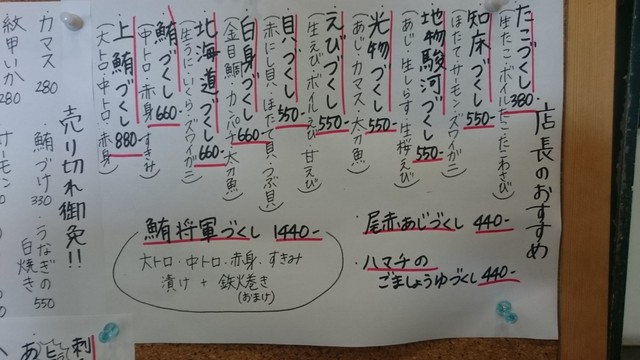 店長のおすすめ
たこづくし 380-
(生たこ・ボイルたこ・たこわさび)
知床づくし 550-
(ほたて・サーモン・ズワイガニ)
地物駿河づくし 550-
(あじ・生しらす・生桜えび)
光物づくし 550-
(あじ・カマス・太刀魚)
えびづくし 550-
(生えび・ボイルえび・甘えび)
貝づくし 550-
(赤にし貝・ほたて貝・つぶ貝)
白身づくし 660-
(金目鯛・カンパチ・太刀魚)
北海道づくし 660-
(生うに・いくら・ズワイガニ)
鮪づくし 660-
(中トロ・赤身・すきみ)
上鮪づくし 880-
(大トロ・中トロ・赤身)
尾赤あじづくし 440-
・ハマチの
ごましょうゆづくし 440-
鮪将軍づくし 1440-
大トロ・中トロ・赤身・すきみ
漬け + 鉄火巻き
(おまけ)
売り切れ御免!!
カマス 280
・鮪づけ 330
・うなぎの
白焼き 550
紋甲いか 280
サーモン
刺